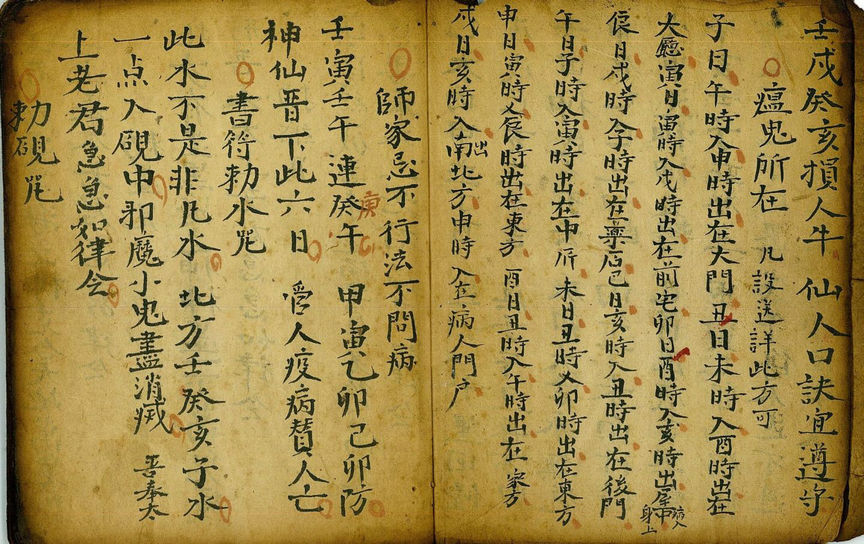 壬戌癸亥損人牛 仙人口訣宜遵守
瘟鬼所在 凡設送詳此方可
子日午時入申時出在大門 丑日未時入酉時出在
大廳寅日寅時入戌時出在前宅卯日酉時入亥時出屋中病人身上
辰日戌時入子時出在藥店巳日亥時入丑時出在後門
午日子時入寅時出在中所未日丑時入卯時出在東方
申日寅時入辰時出在東方 酉日丑時入午時出在家方
戌日亥時入南出北方申時入在病人門户
師家忌不行法不問病
壬寅壬午連癸午庚 甲寅乙卯己卯防
神仙晋下此六日 愛人疫病替人亡
書符勅水咒
此水不是非凡水 北方壬癸亥子水
一点入硯中邪魔小鬼盡消滅 吾奉太
上老君急急如律令
勅硯咒